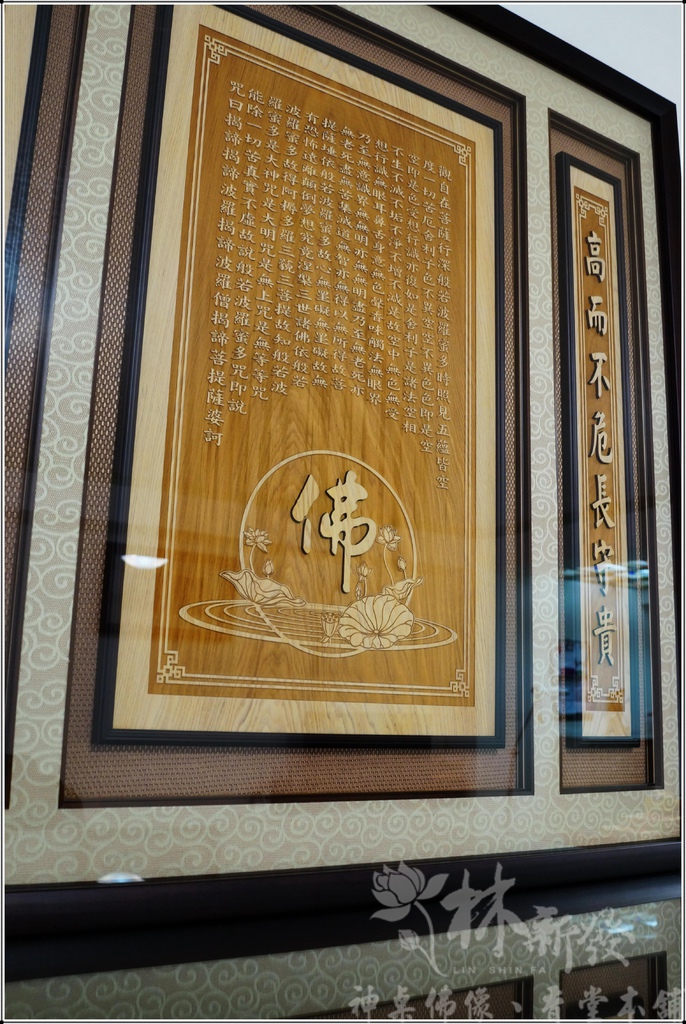 高而不危長守貴
觀自在菩薩行深般若波羅蜜多時照見五蘊皆空
度一切苦厄舍利子色不異空空不異色色即是空
空即是色受想行識亦復如是舍利子是諸法空相
不生不滅不垢不淨不增不減是故空中無色無受
想行識無眼耳鼻舌身意無色聲香味觸法無眼界
乃至無意識界無無明亦無無明盡乃至無老死亦
無老死盡無苦集滅道無智亦無得以無所得故菩
提薩埵依般若波羅蜜多故心無罣礙無罣礙故無
有恐怖遠離顛倒夢想究竟涅槃三世諸佛依般若
波羅蜜多故得阿耨多羅三藐三菩提故知般若波
羅蜜多是大神咒是大明咒是無上咒是無等等咒
能除一切苦真實不虛故說般若波羅蜜多咒即說
咒曰揭諦揭諦波羅揭諦波羅僧揭諦菩提薩婆訶
佛
林新發
LIN SHIN FA
神桌佛像、香堂本舖